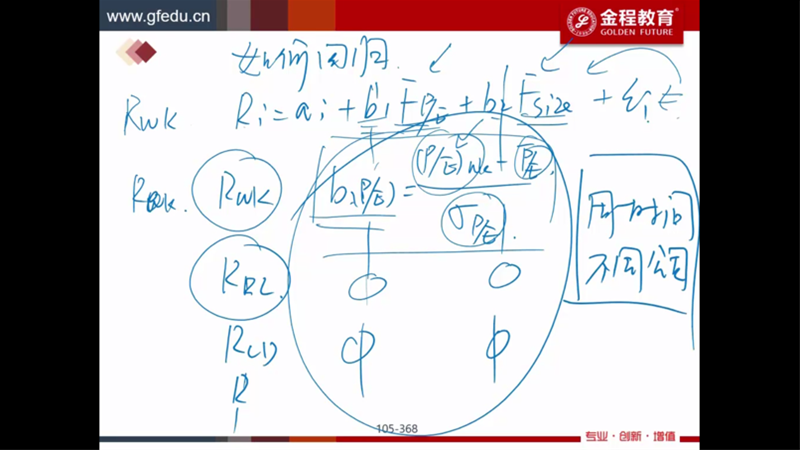 www.gfedu.cn
金程教育
GOLDEN FUTURE
如何回归
RWK Ri = ai + b1 FP/E + b2 Fsize + εi,t
RWK b1(P/E) = (P/E)WK - P/E
σP/E
同一时间
不同公司
105-368
专业·创新·增值